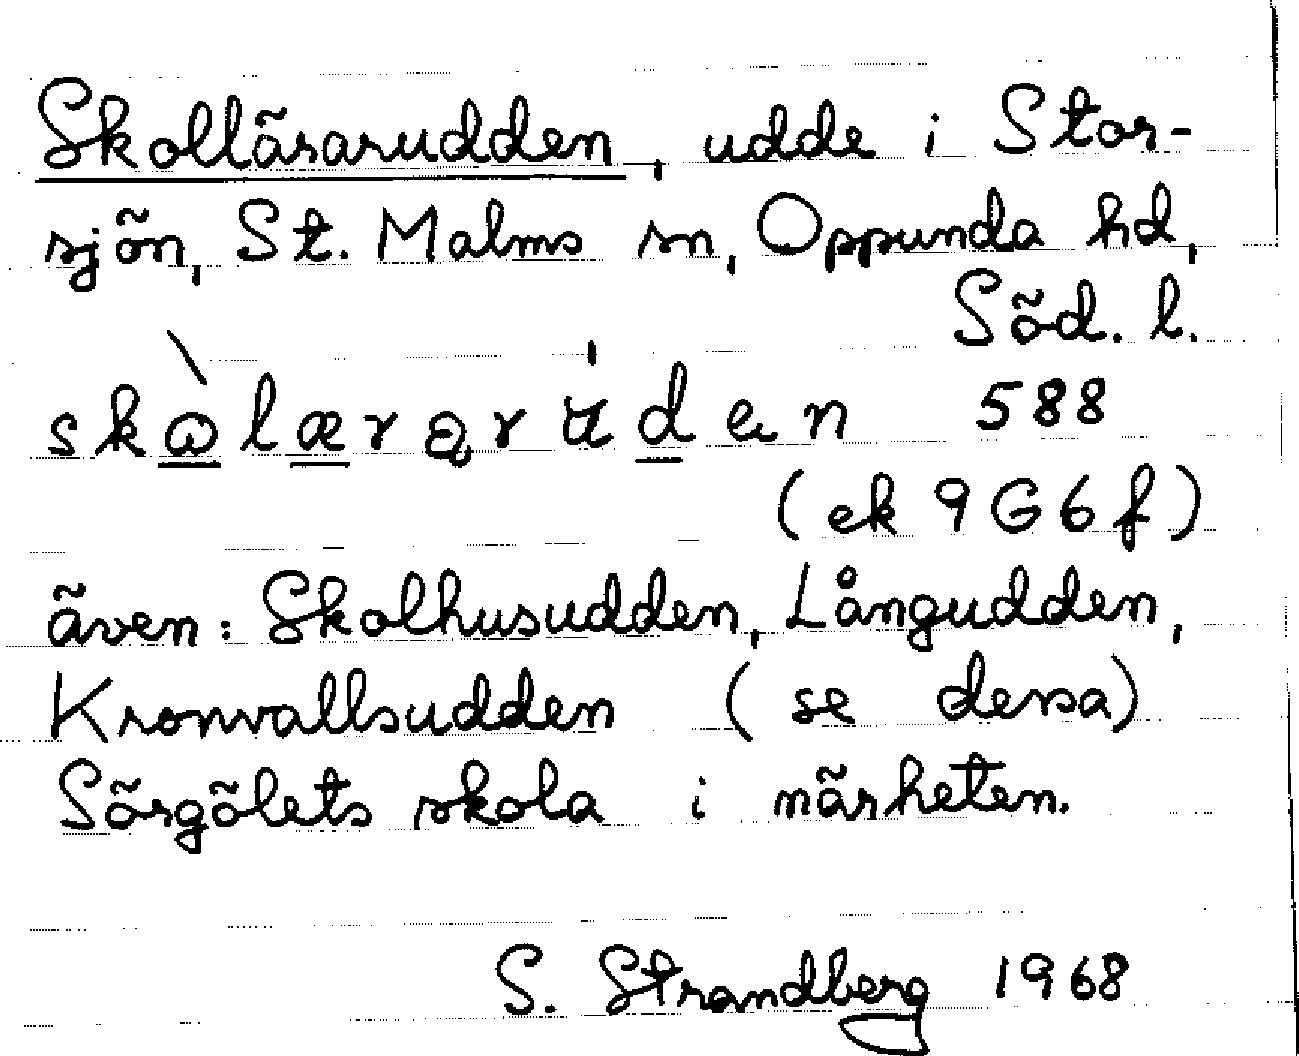 Skollärarudden, udde i Stor-
sjön, St. Malms sn, Oppunda hd,
Söd. l.
588
(ek 9G6f)
även: Skolhusudden, Långudden,
Kronvallsudden (se dessa)
Sörgölets skola i närheten.
S. Strandberg 1968